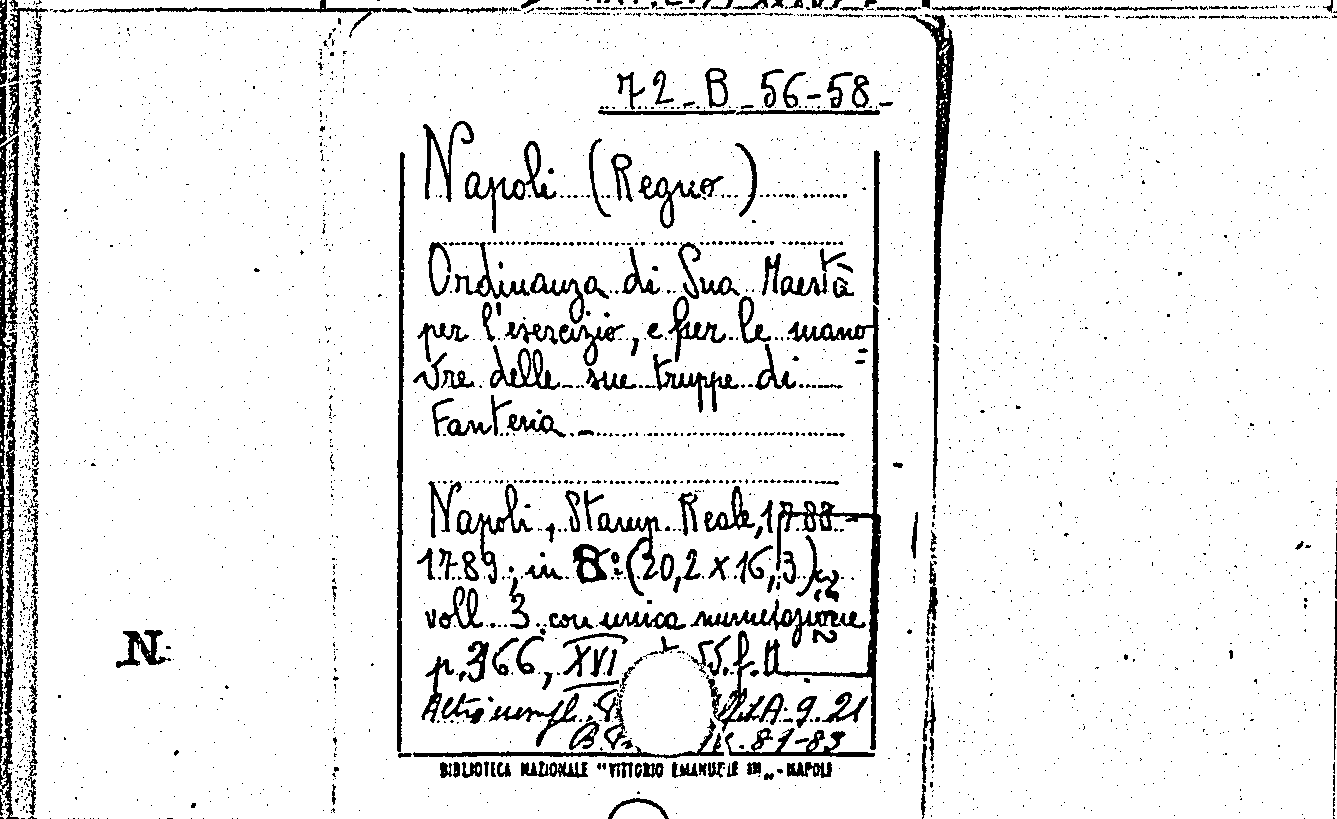 72_B_56-58_
Napoli (Regno)
Ordinanza di Sua Maestà
per l'esercizio, e per le mano=
vre delle sue truppe di
Fanteria_
Napoli, Stamp. Reale, 1788-
1789; in 8º (20,2 x 16,3)
voll. 3 con unica numerazione
p. 366, XVI
N.
BIBLIOTECA NAZIONALE "VITTORIO EMANUELE III„ - NAPOLI